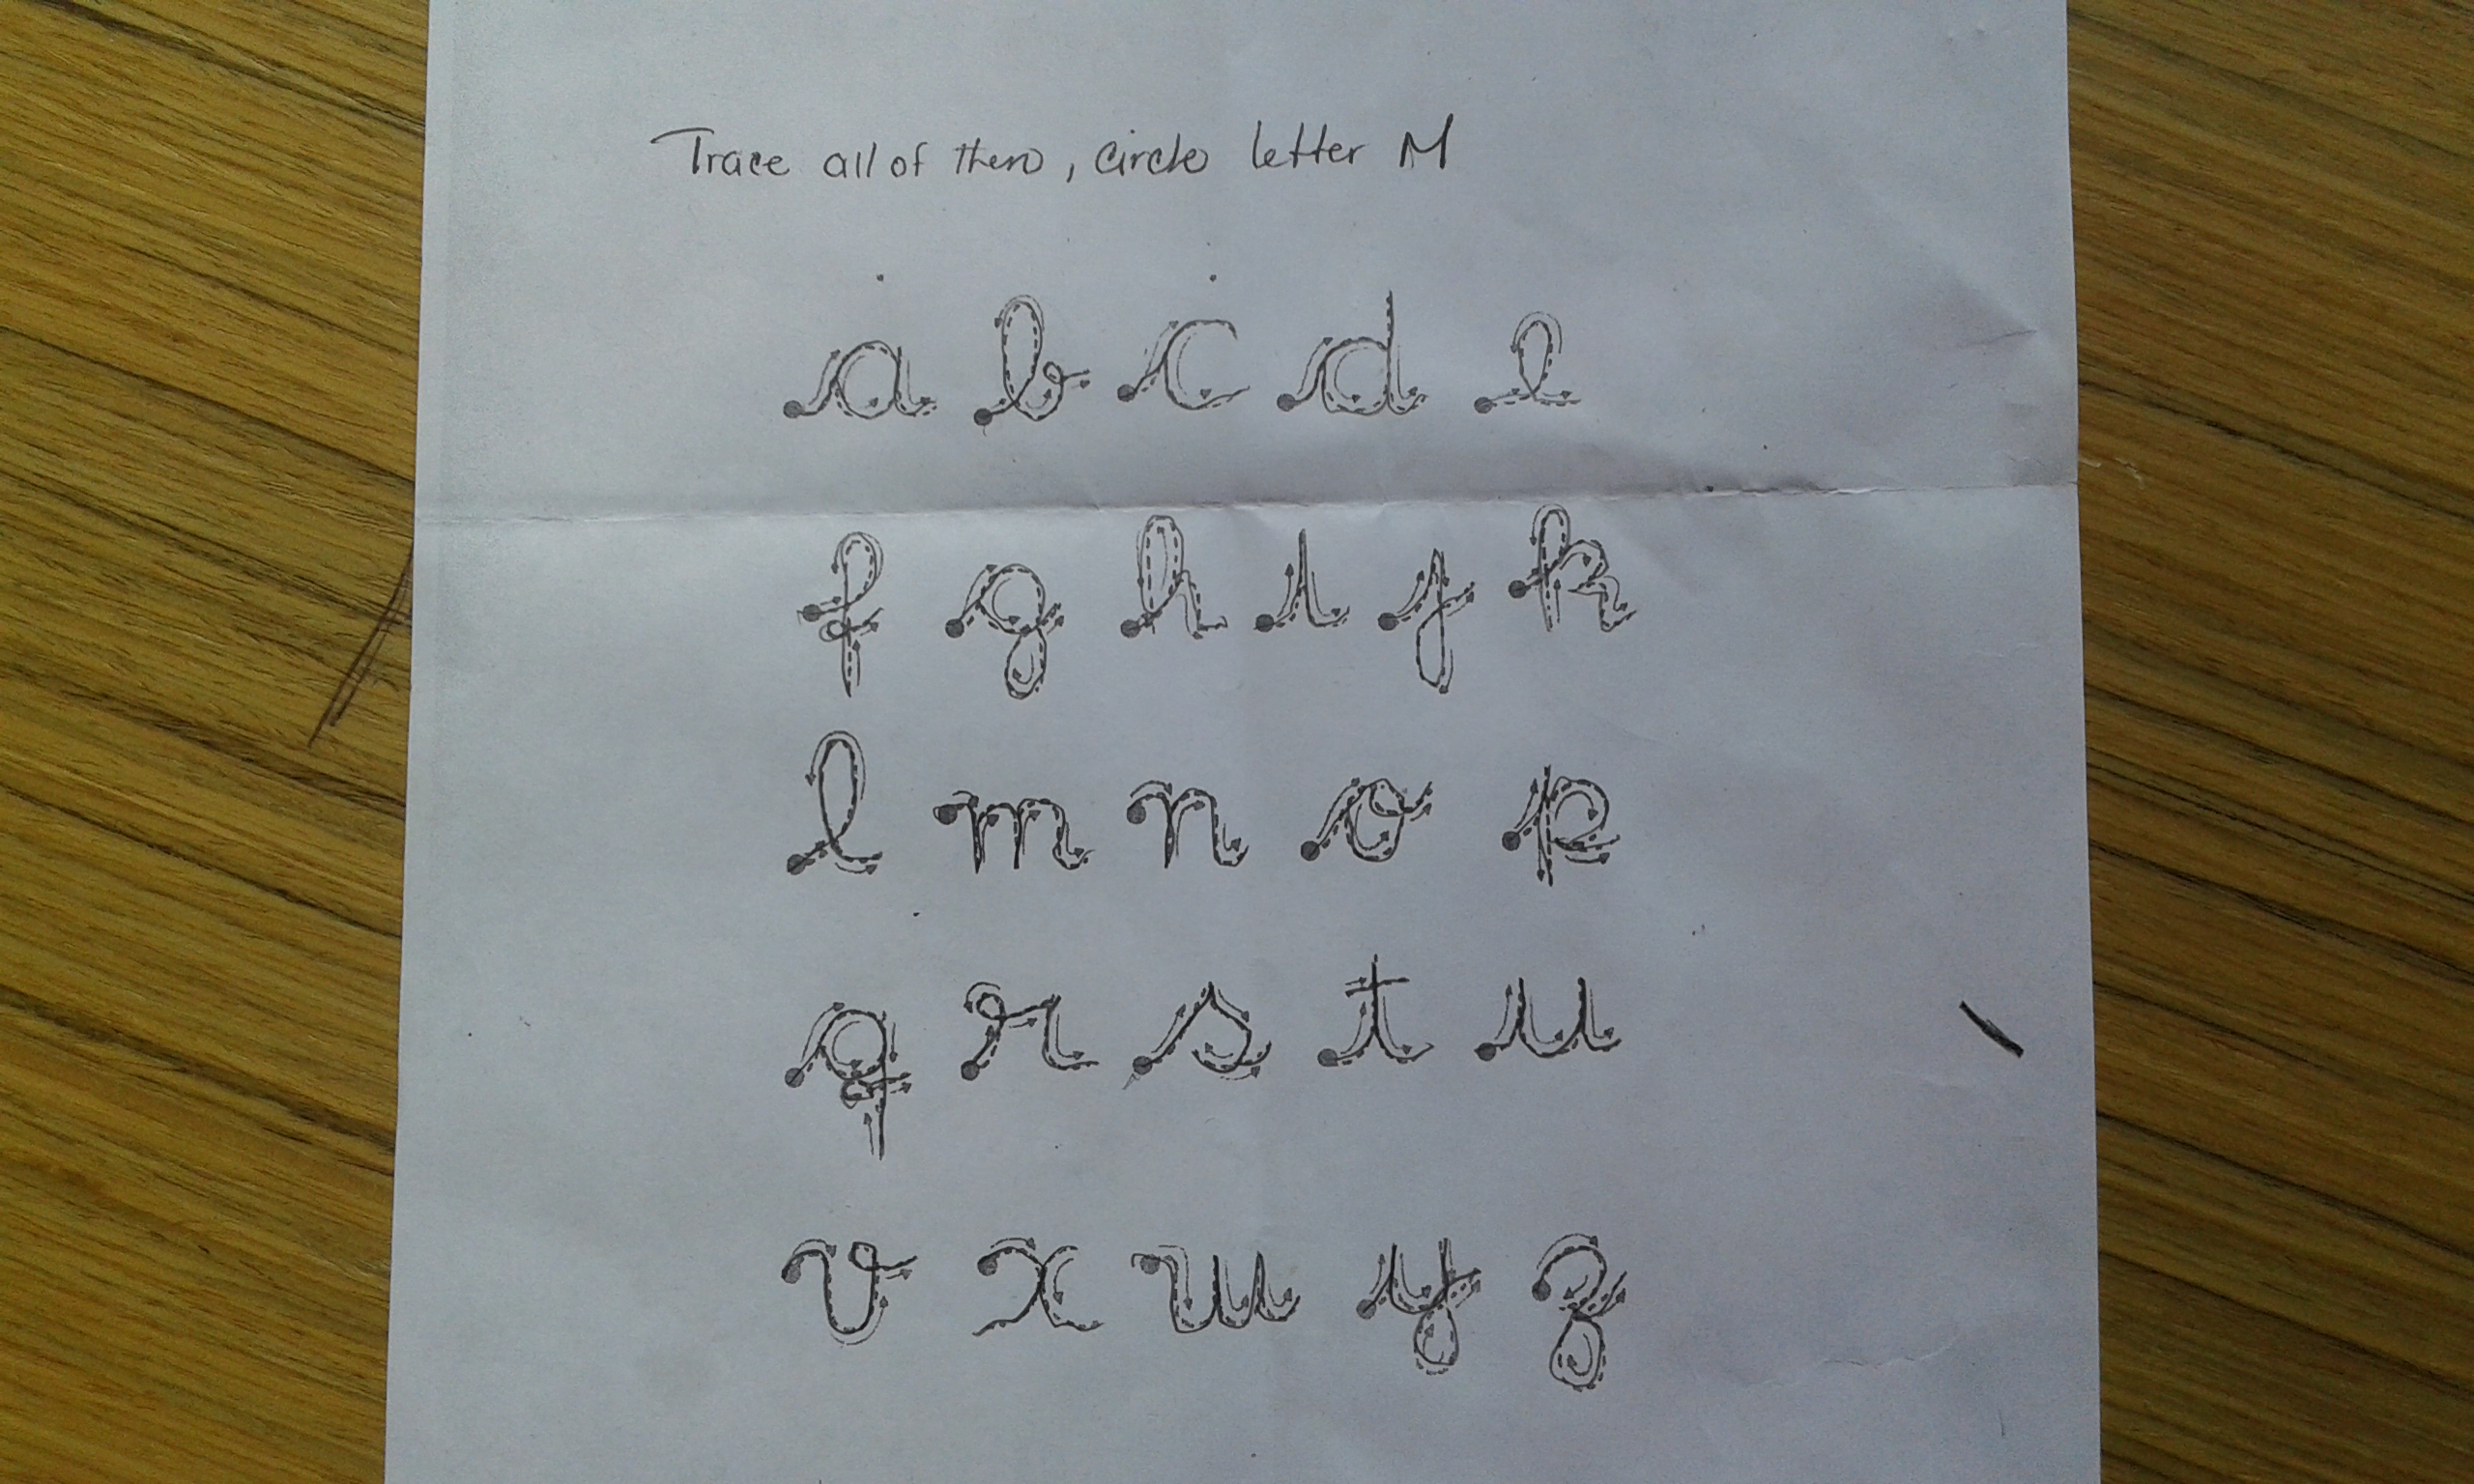 Trace all of them, circle letter M
a b c d e
f g h i j k
l m n o p
q r s t u
v x w y z